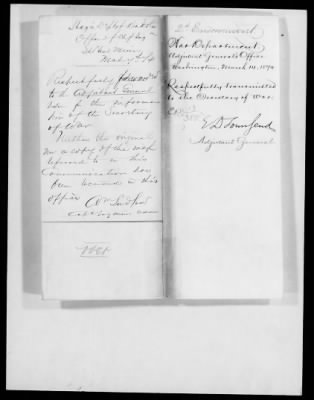 Hdqrs Dept of Dakota
Office of Chf Eng
St Paul Minn
Respectfully forwarded
to the Adjutant General
for the information
of the Secretary
of War
Neither the original
nor a copy of the map
referred to in this
communication has
been received in this
office
Wm Ludlow
2d Endorsement
War Department
Adjutant General's Office
Washington, March 14, 1874
Respectfully transmitted
to the Secretary of War.
E D Townsend
Adjutant General